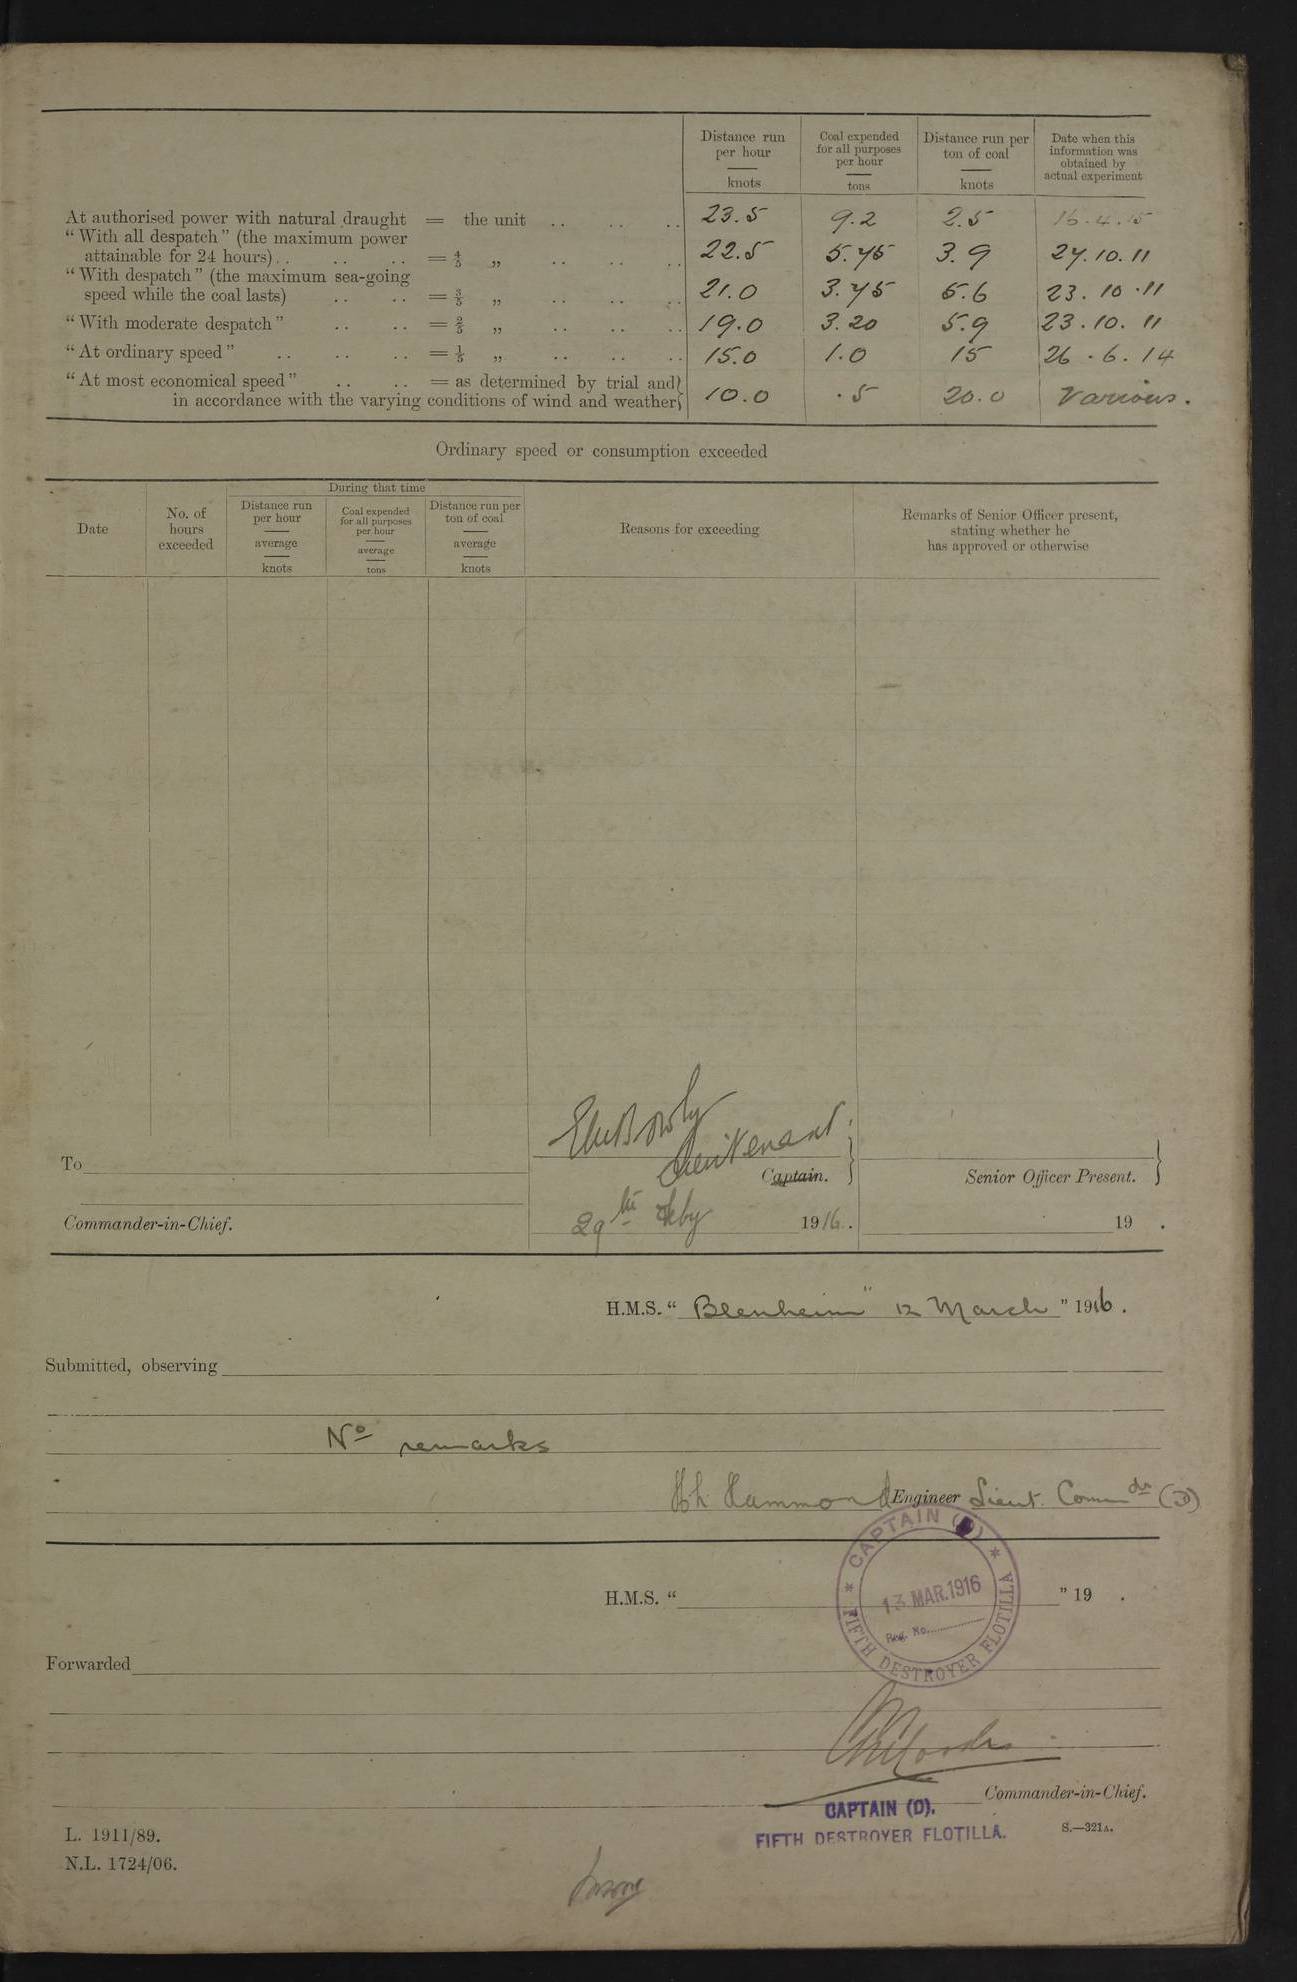 Distance run per hour knots
Coal expended for all purposes per hour tons
Distance run per ton of coal knots
Date when this information was obtained by actual experiment
At authorised power with natural draught = the unit .. .. .. 23.5 9.2 2.5 16.4.15
"With all despatch" (the maximum power
attainable for 24 hours) .. .. .. = 4/5 „ .. .. .. 22.5 5.75 3.9 27.10.11
"With despatch" (the maximum sea-going
speed while the coal lasts) .. .. = 3/5 „ .. .. .. 21.0 3.75 5.6 23.10.11
"With moderate despatch" .. .. = 2/5 „ .. .. .. 19.0 3.20 5.9 23.10.11
"At ordinary speed" .. .. .. = 1/5 „ .. .. .. 15.0 1.0 15 26.6.14
"At most economical speed" .. .. = as determined by trial and
in accordance with the varying conditions of wind and weather 10.0 .5 20.0 Various.
Ordinary speed or consumption exceeded
Date
No. of hours exceeded
During that time
Distance run per hour average knots
Coal expended for all purposes per hour average tons
Distance run per ton of coal average knots
Reasons for exceeding
Remarks of Senior Officer present, stating whether he has approved or otherwise
Lieutenant.
To
Captain.
Senior Officer Present.
Commander-in-Chief.
29th Feby 1916.
19 .
H.M.S. "Blenheim" 12 March " 1916.
Submitted, observing
No remarks
Hammond Engineer Lieut. Commdr (D)
CAPTAIN (D)
13 MAR. 1916
Reg. No.
FIFTH DESTROYER FLOTILLA
H.M.S. " " 19 .
Forwarded
Commander-in-Chief.
CAPTAIN (D).
FIFTH DESTROYER FLOTILLA.
S.—321A.
L. 1911/89.
N.L. 1724/06.